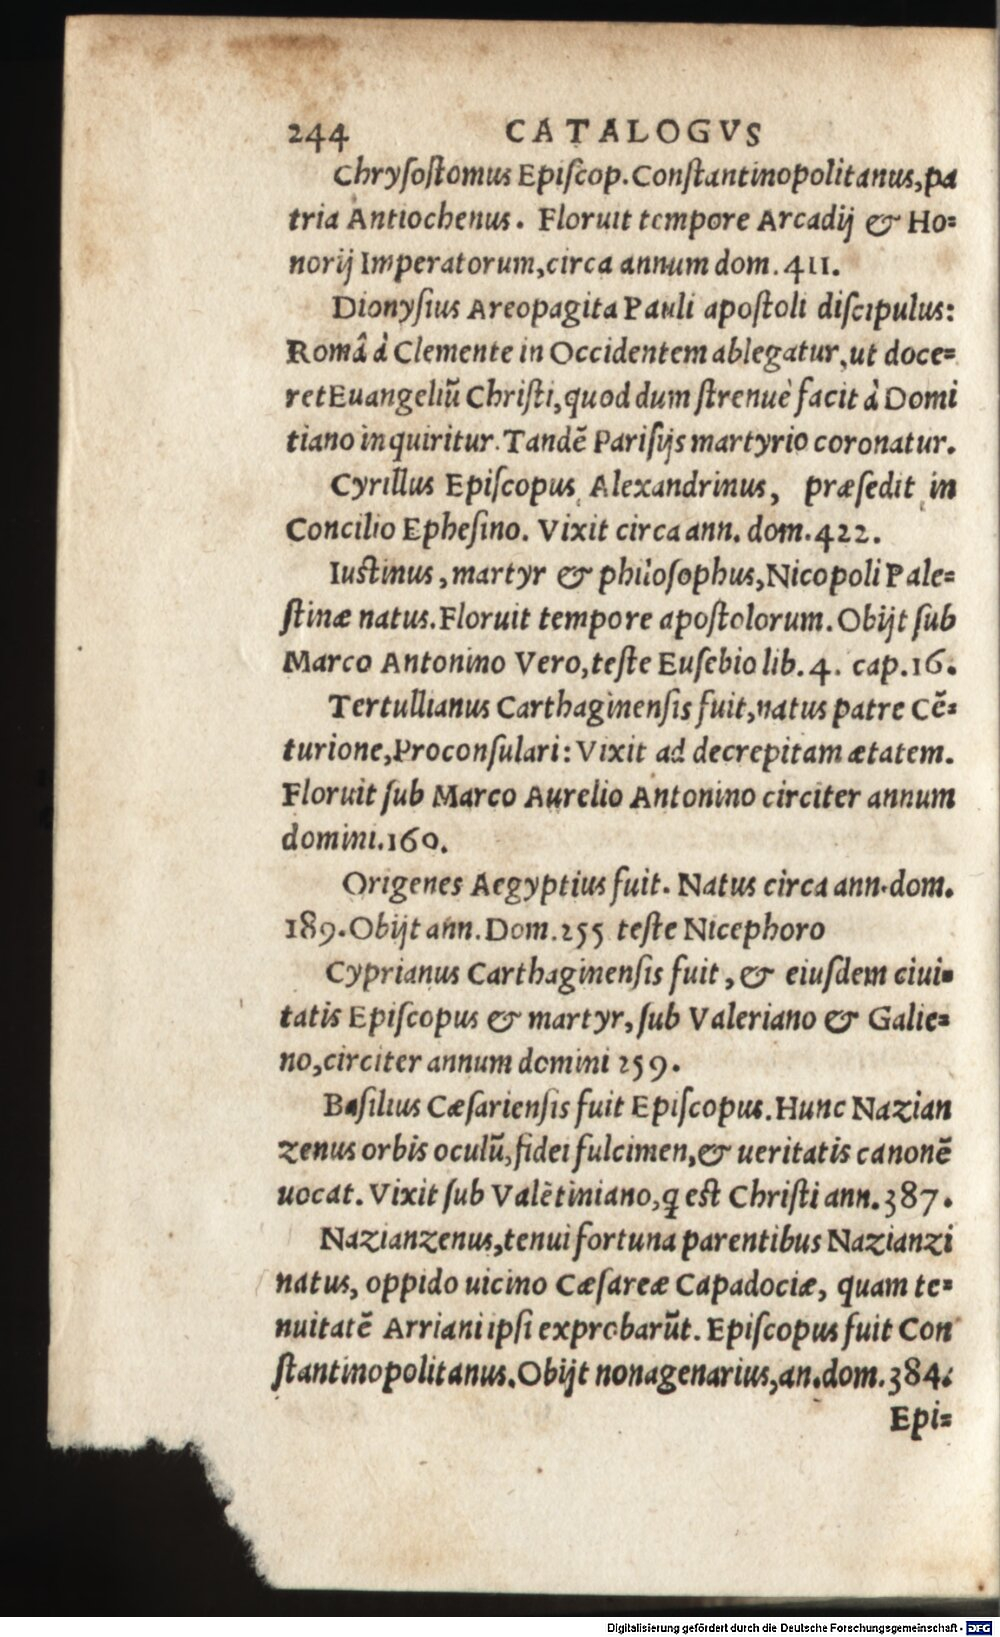 244 CATALOGVS
Chrysostomus Episcop. Constantinopolitanus, pa
tria Antiochenus. Floruit tempore Arcadij & Ho=
norij Imperatorum, circa annum dom. 411.
Dionysius Areopagita Pauli apostoli discipulus:
Româ à Clemente in Occidentem ablegatur, ut doce=
ret Euangeliũ Christi, quod dum strenuè facit à Domi
tiano inquiritur. Tandẽ Parisijs martyrio coronatur.
Cyrillus Episcopus Alexandrinus, præsedit in
Concilio Ephesino. Vixit circa ann. dom. 422.
Iustinus, martyr & philosophus, Nicopoli Pale=
stinæ natus. Floruit tempore apostolorum. Obijt sub
Marco Antonino Vero, teste Eusebio lib. 4. cap. 16.
Tertullianus Carthaginensis fuit, natus patre Cẽ=
turione, Proconsulari: Vixit ad decrepitam ætatem.
Floruit sub Marco Aurelio Antonino circiter annum
domini. 160.
Origenes Aegyptius fuit. Natus circa ann. dom.
189. Obijt ann. Dom. 255 teste Nicephoro
Cyprianus Carthaginensis fuit, & eiusdem ciui=
tatis Episcopus & martyr, sub Valeriano & Galie=
no, circiter annum domini 259.
Basilius Cæsariensis fuit Episcopus. Hunc Nazian
zenus orbis oculũ, fidei fulcimen, & ueritatis canonẽ
uocat. Vixit sub Valẽtiniano, q est Christi ann. 387.
Nazianzenus, tenui fortuna parentibus Nazianzi
natus, oppido uicino Cæsareæ Capadociæ, quam te=
nuitatẽ Arriani ipsi exprobarũt. Episcopus fuit Con
stantinopolitanus. Obijt nonagenarius, an. dom. 384.
Epi=
Digitalisierung gefördert durch die Deutsche Forschungsgemeinschaft - DFG